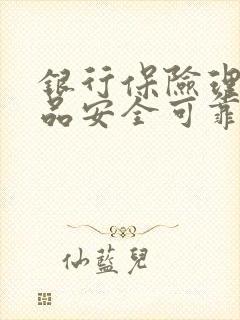 銀行保險理
品安全可靠
仙藍兒